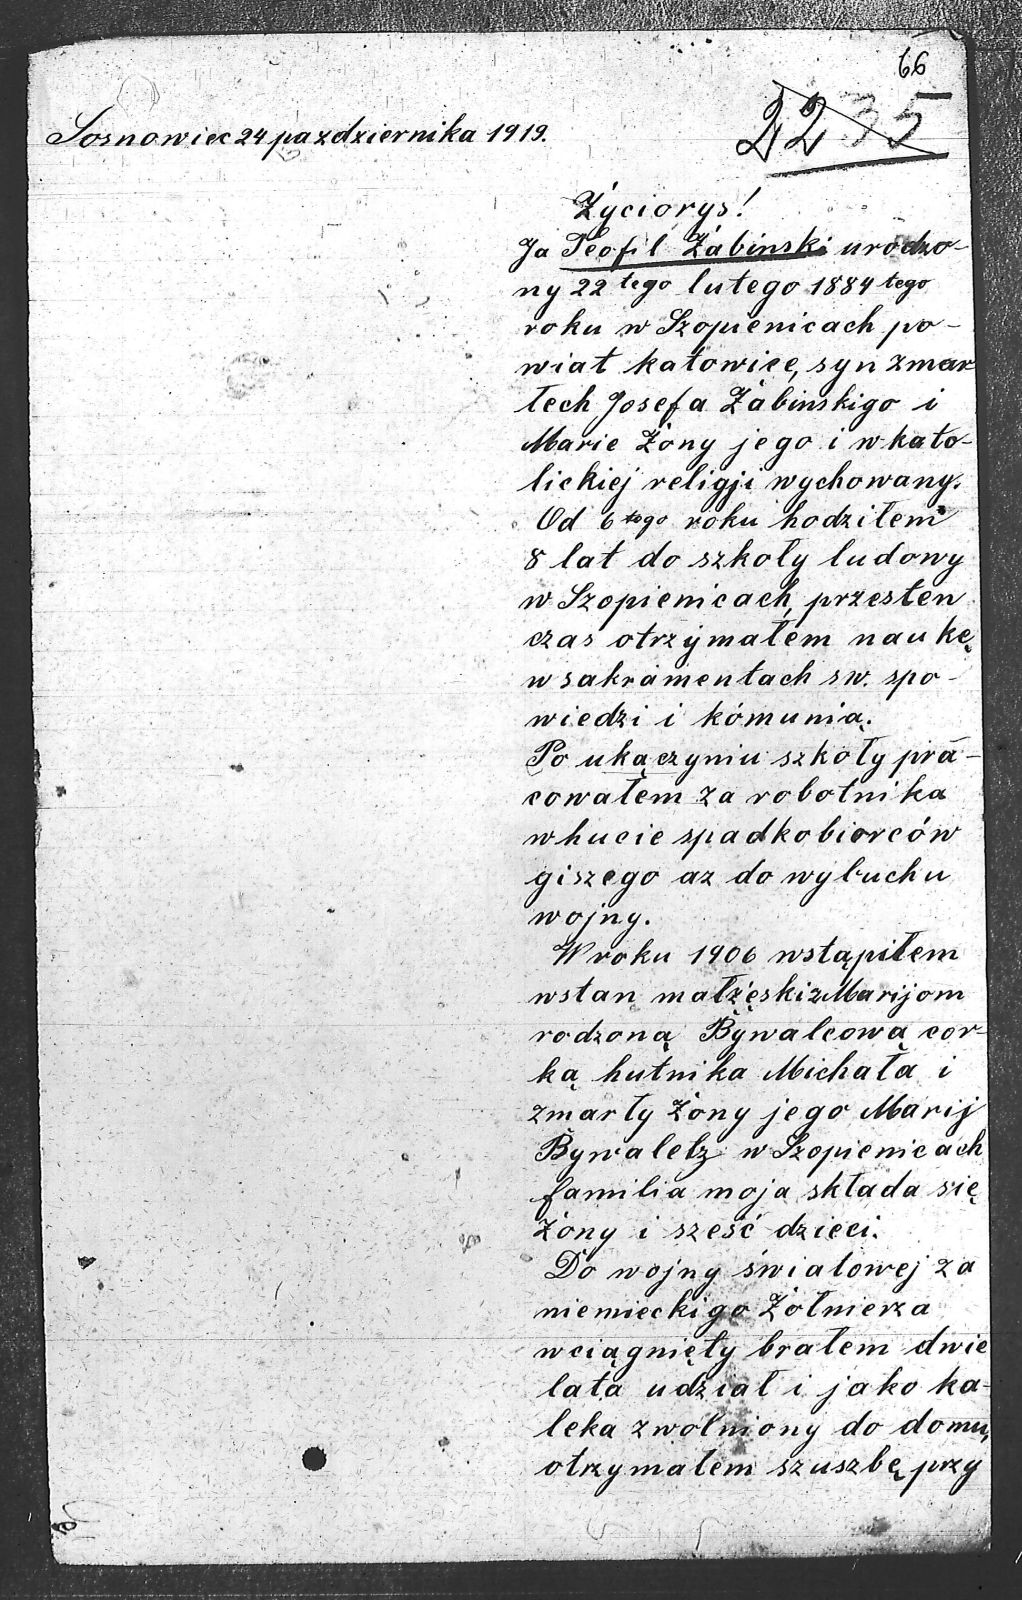 66
22 35
Sosnowiec 24 pazdziernika 1919.
Życiorys!
Ja Teofil Żabinski urodzo-
ny 22 tego lutego 1884 tego
roku w Szopienicach po-
wiat katowice, syn zmar
łech Josefa Żabinskigo i
Marie Żony jego i w kato-
lickiej religji wychowany.
Od 6 tego roku hodziłem
8 lat do szkoły ludowy
w Szopienicach, przesten
czas otrzymałem naukę
w sakramentach sw. spo-
wiedzi i kómunią.
Po ukączyniu szkoły pra-
cowałem za robotnika
w hucie spadkobiorców
giszego az do wybuchu
wojny.
W roku 1906 wstąpiłem
wstan małżęski z Marijom
rodzoną Bywalcową cor-
ką hutnika Michała i
zmarły Żony jego Marij
Bywaletz w Szopienicach
familia moja składa się
Żony i sześć dzieci.
Do wojny światowej za
niemieckigo Żołnierza
wciągnięty brałem dwie
lata udział i jako ka-
leka zwolniony do domu,
otrzymałem szuszbę przy